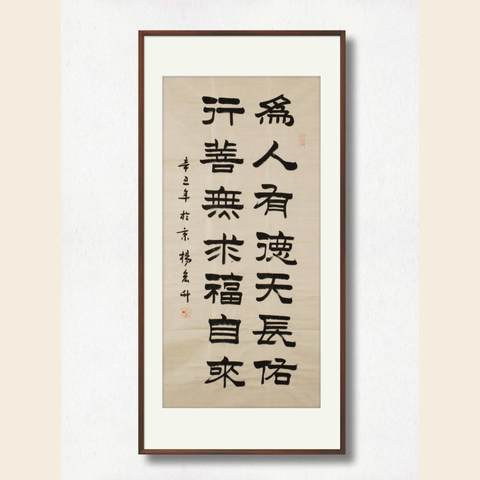 為人有德天長佑
行善無求福自來
辛丑年於京楊